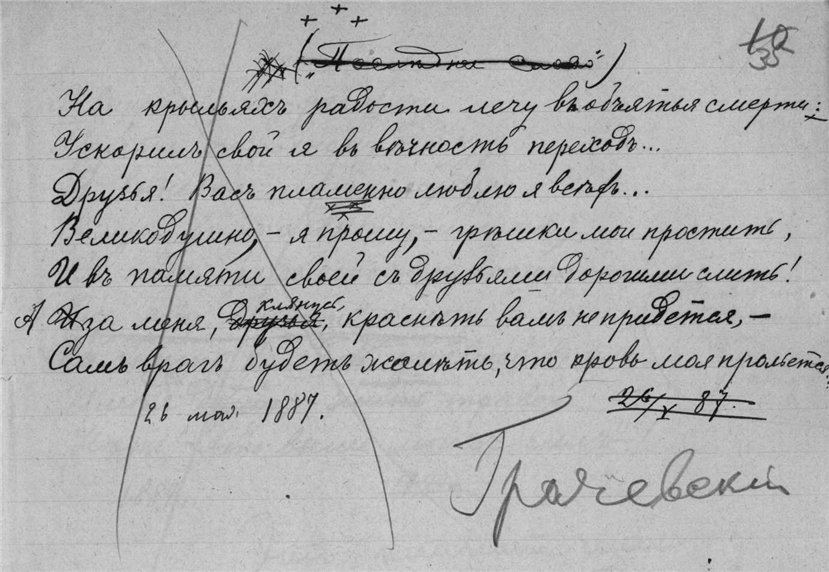 10
35
("Последнее слово")
На крыльяхъ радости лечу въ объятья смерти:
Ускорилъ свой я въ вѣчность переходъ...
Друзья! Васъ пламенно люблю я всѣхъ...
Великодушно, – я прошу, – грѣшки мои простить,
И въ памяти своей съ друзьями дорогими слить!
А за меня, друзья, клянусь, краснѣть вамъ не придется, –
Самъ врагъ будетъ жалѣть, что кровь моя прольется.
26 мая 1887.
26/V 87.
Грачевскій